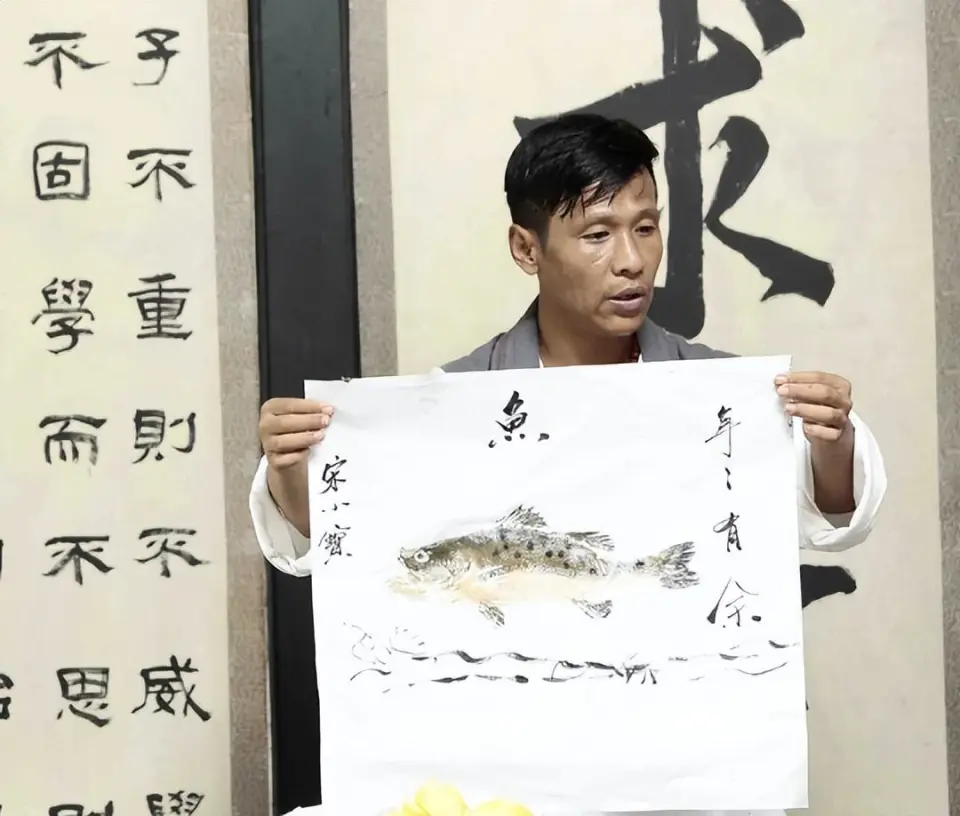 求
魚
年々有余
宋小寶
子不重則不威學
不固學而不思則